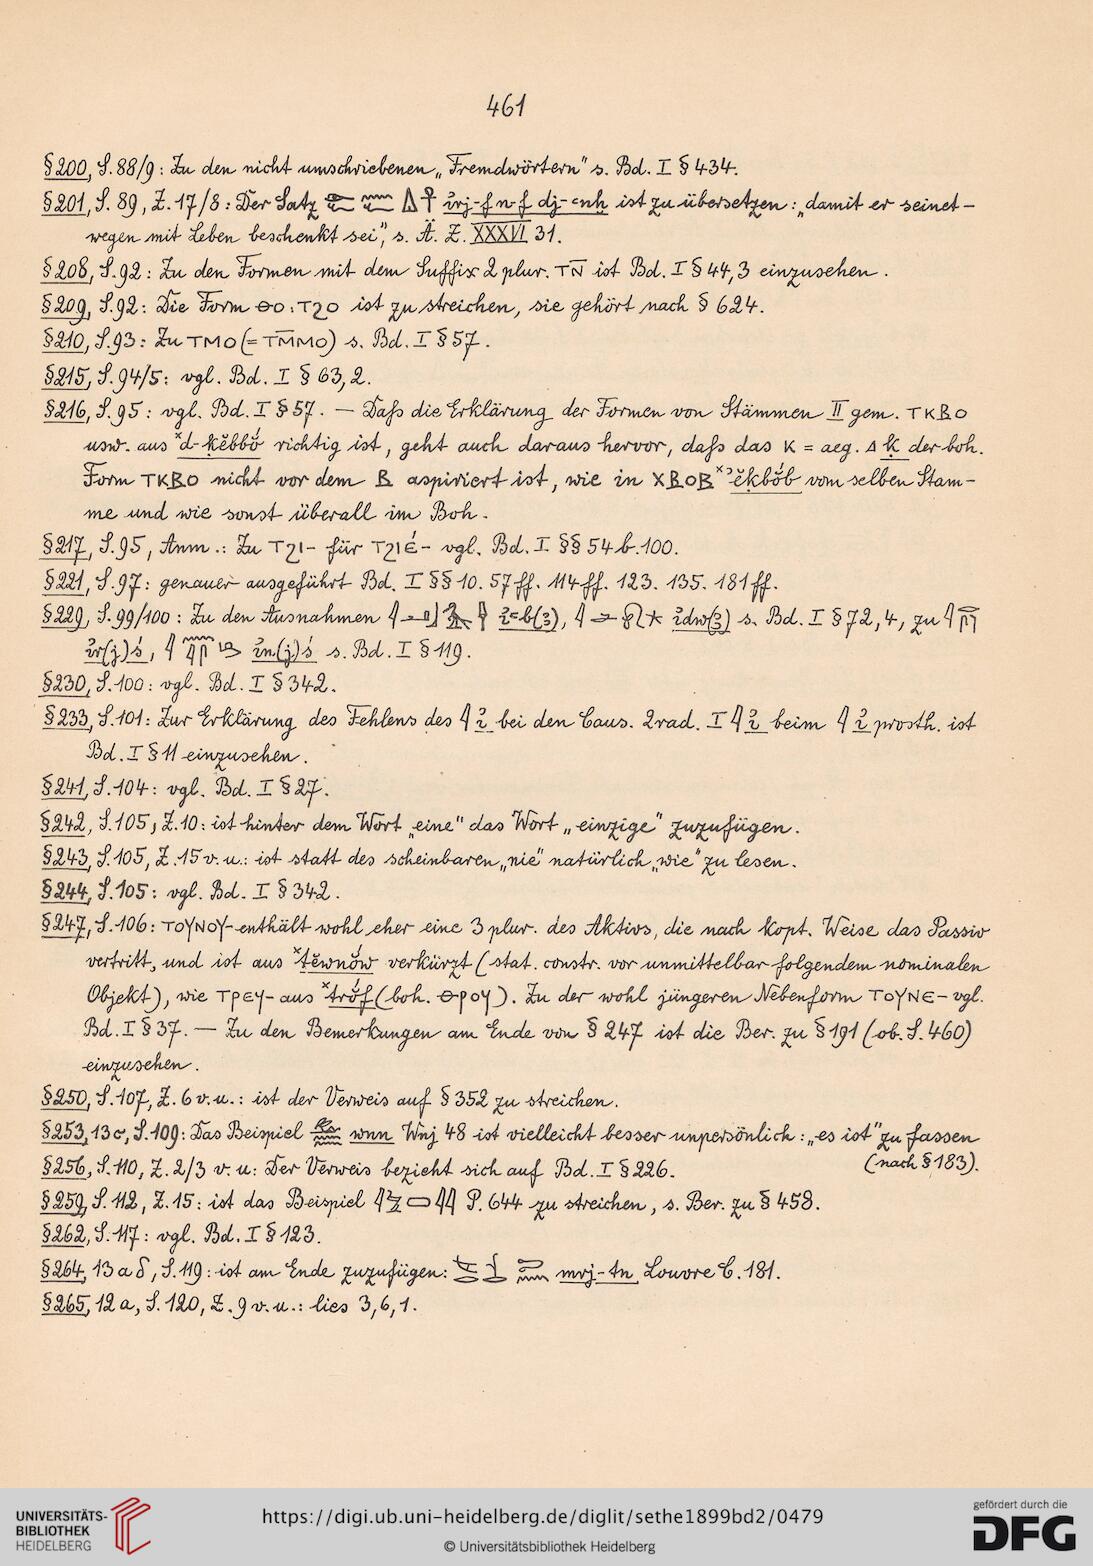 461
§200, S. 88/9: Zu den nicht umschriebenen „Fremdwörtern" s. Bd. I § 434.
§201, S. 89, Z. 17/8: Der Satz ı͗rj-f n-f dj-ꜥnḫ ist zu übersetzen: „damit er seinet-
wegen mit Leben beschenkt sei", s. Ä. Z. XXXVI 31.
§208, S. 92: Zu den Formen mit dem Suffix 2 plur. ⲧⲛ̄ ist Bd. I § 44,3 einzusehen.
§209, S. 92: Die Form ⲑⲟ : ⲧϩⲟ ist zu streichen, sie gehört nach § 624.
§210, S. 93: Zu ⲧⲙⲟ (= ⲧⲙ̄ⲙⲟ) s. Bd. I § 57.
§215, S. 94/5: vgl. Bd. I § 63, 2.
§216, S. 95: vgl. Bd. I § 57. — Daſs die Erklärung der Formen von Stämmen II gem. ⲧⲕⲃⲟ
usw. aus ˣd-ḳĕbbŏ́ richtig ist, geht auch daraus hervor, daſs das ⲕ = aeg. 𓈎 ḳ der boh.
Form ⲧⲕⲃⲟ nicht vor dem ⲃ aspiriert ist, wie in ⲭⲃⲟⲃ ˣʾĕḳbŏ́b vom selben Stam-
me und wie sonst überall im Boh.
§217, S. 95, Anm.: Zu ⲧϩⲓ- für ⲧϩⲓⲉ́- vgl. Bd. I §§ 54b. 100.
§221, S. 97: genauer ausgeführt Bd. I §§ 10. 57ff. 114ff. 123. 135. 181ff.
§229, S. 99/100: Zu den Ausnahmen ı͗ꜥb(ꜣ), ı͗dw(ꜣ) s. Bd. I § 72, 4, zu
ı͗r(j)ś, ı͗n(j)ś s. Bd. I § 119.
§230, S. 100: vgl. Bd. I § 342.
§233, S. 101: Zur Erklärung des Fehlens des 𓇋 ı͗ bei den Caus. 2rad. I 𓇋 ı͗ beim 𓇋 ı͗ prosth. ist
Bd. I § 11 einzusehen.
§241, S. 104: vgl. Bd. I § 27.
§242, S. 105, Z. 10: ist hinter dem Wort „eine" das Wort „einzige" zuzufügen.
§243, S. 105, Z. 15 v. u.: ist statt des scheinbaren „nie" natürlich „wie" zu lesen.
§244, S. 105: vgl. Bd. I § 342.
§247, S. 106: ⲧⲟⲩⲛⲟⲩ- enthält wohl eher eine 3 plur. des Aktivs, die nach kopt. Weise das Passiv
vertritt, und ist aus ˣtĕwnŏ́w verkürzt (stat. constr. vor unmittelbar folgendem nominalen
Objekt), wie ⲧⲣⲉϥ- aus ˣtrŏ́f (boh. ⲑⲣⲟϥ). Zu der wohl jüngeren Nebenform ⲧⲟⲩⲛⲉ- vgl.
Bd. I § 37. — Zu den Bemerkungen am Ende von § 247 ist die Ber. zu § 191 (ob. S. 460)
einzusehen.
§250, S. 107, Z. 6 v. u.: ist der Verweis auf § 352 zu streichen.
§253, 13c, S. 109: Das Beispiel wnn Wnj 48 ist vielleicht besser unpersönlich: „es ist" zu fassen
(nach § 183).
§256, S. 110, Z. 2/3 v. u: Der Verweis bezieht sich auf Bd. I § 226.
§259, S. 112, Z. 15: ist das Beispiel P. 644 zu streichen, s. Ber. zu § 458.
§262, S. 117: vgl. Bd. I § 123.
§264, 13 a δ, S. 119: ist am Ende zuzufügen: mrj-tn Louvre C. 181.
§265, 12 a, S. 120, Z. 9 v. u.: lies 3, 6, 1.
UNIVERSITÄTS-
BIBLIOTHEK
HEIDELBERG
https://digi.ub.uni-heidelberg.de/diglit/sethe1899bd2/0479
© Universitätsbibliothek Heidelberg
gefördert durch die
DFG